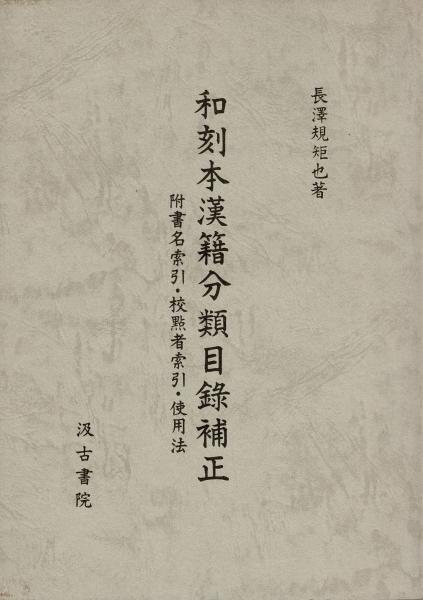 長澤規矩也著
和刻本漢籍分類目錄補正
附書名索引・校點者索引・使用法
汲古書院